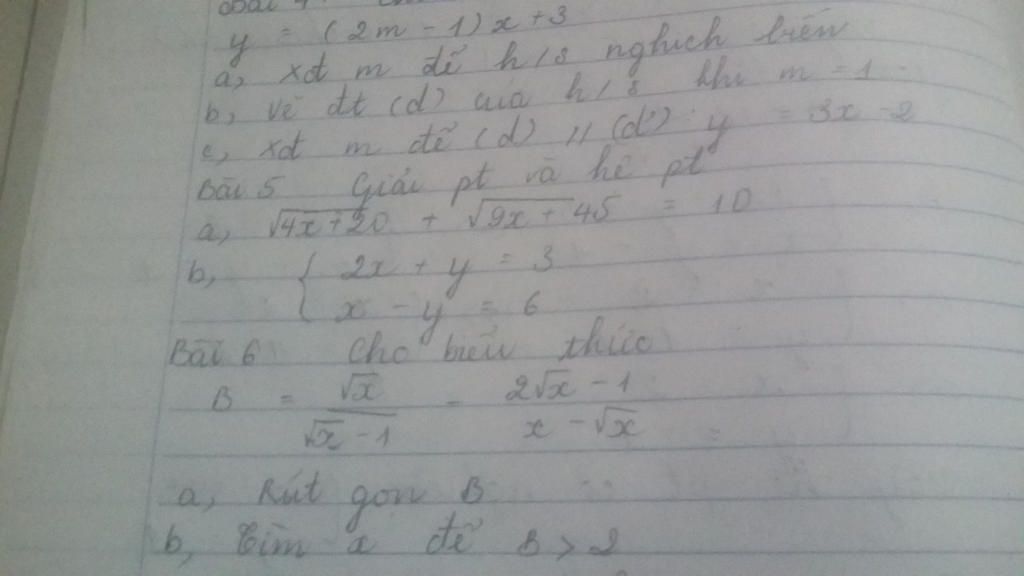 Bài 4
y = (2m - 1)x + 3
a, xđ m để h/s nghịch biến
b, vẽ đt (d) của h/s khi m = 1
c, xđ m để (d) // (d') : y = 3x - 2
Bài 5 Giải pt và hệ pt
a, √4x+20 + √9x+45 = 10
b, { 2x + y = 3
x - y = 6
Bài 6 Cho biểu thức
B = √x / √x - 1 - 2√x - 1 / x - √x
a, Rút gọn B
b, Tìm x để B > 2